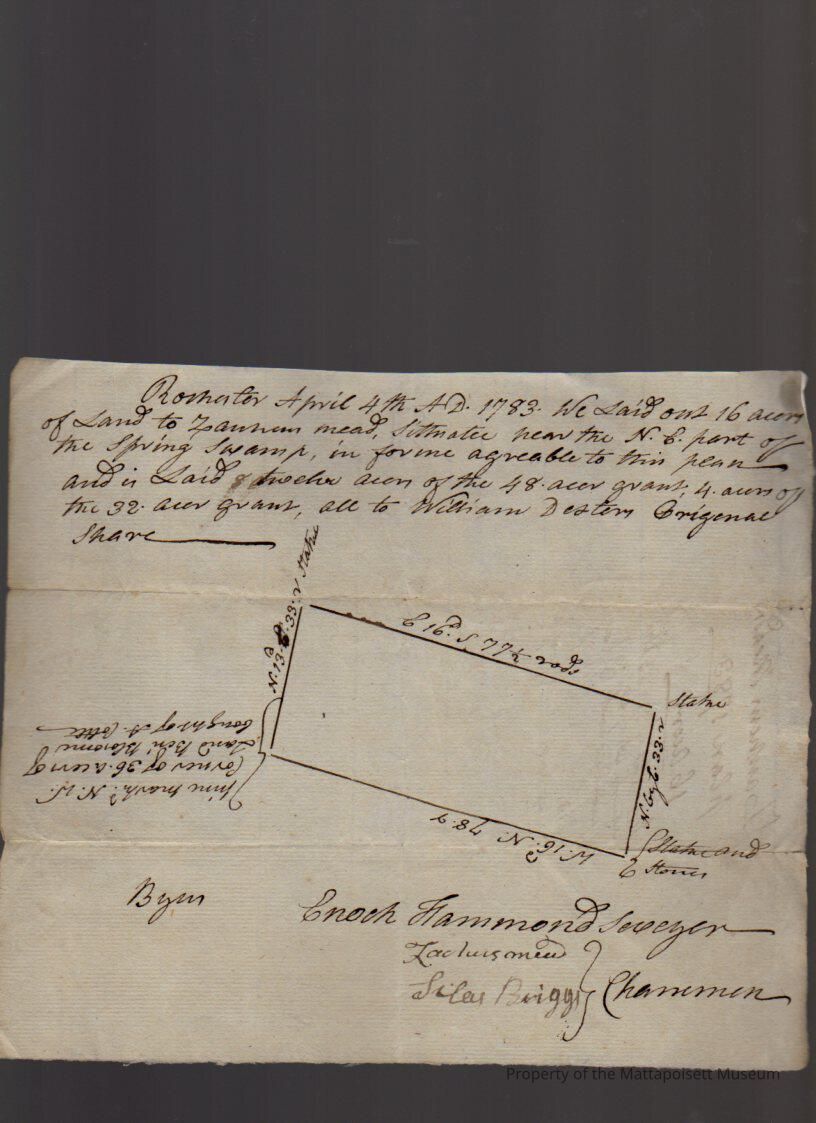 Rochester April 4th A.D. 1783. We Laid out 16 acers
of Land to mead, Sittuatee near the N. E. part of
the Spring Swamp, in forme agreable to this plan
and is Laid twelve acers of the 48. acer grant, 4. acers of
the 32. acer grant, all to William Dexters Origenal
Share
Stake
N. 13.d E. 33. r
E 16.d S 77½ rods
Stake
N. by E. 33. r
Stake and
Stones
W. 16.d N. 78. r
pine markd. N. W.
Corner of 36. acers of
Land Ben
bought of
By us
Enoch Hammond Seveyer
Zacheus mead
Silas Briggs
Chanemen
Property of the Mattapoisett Museum